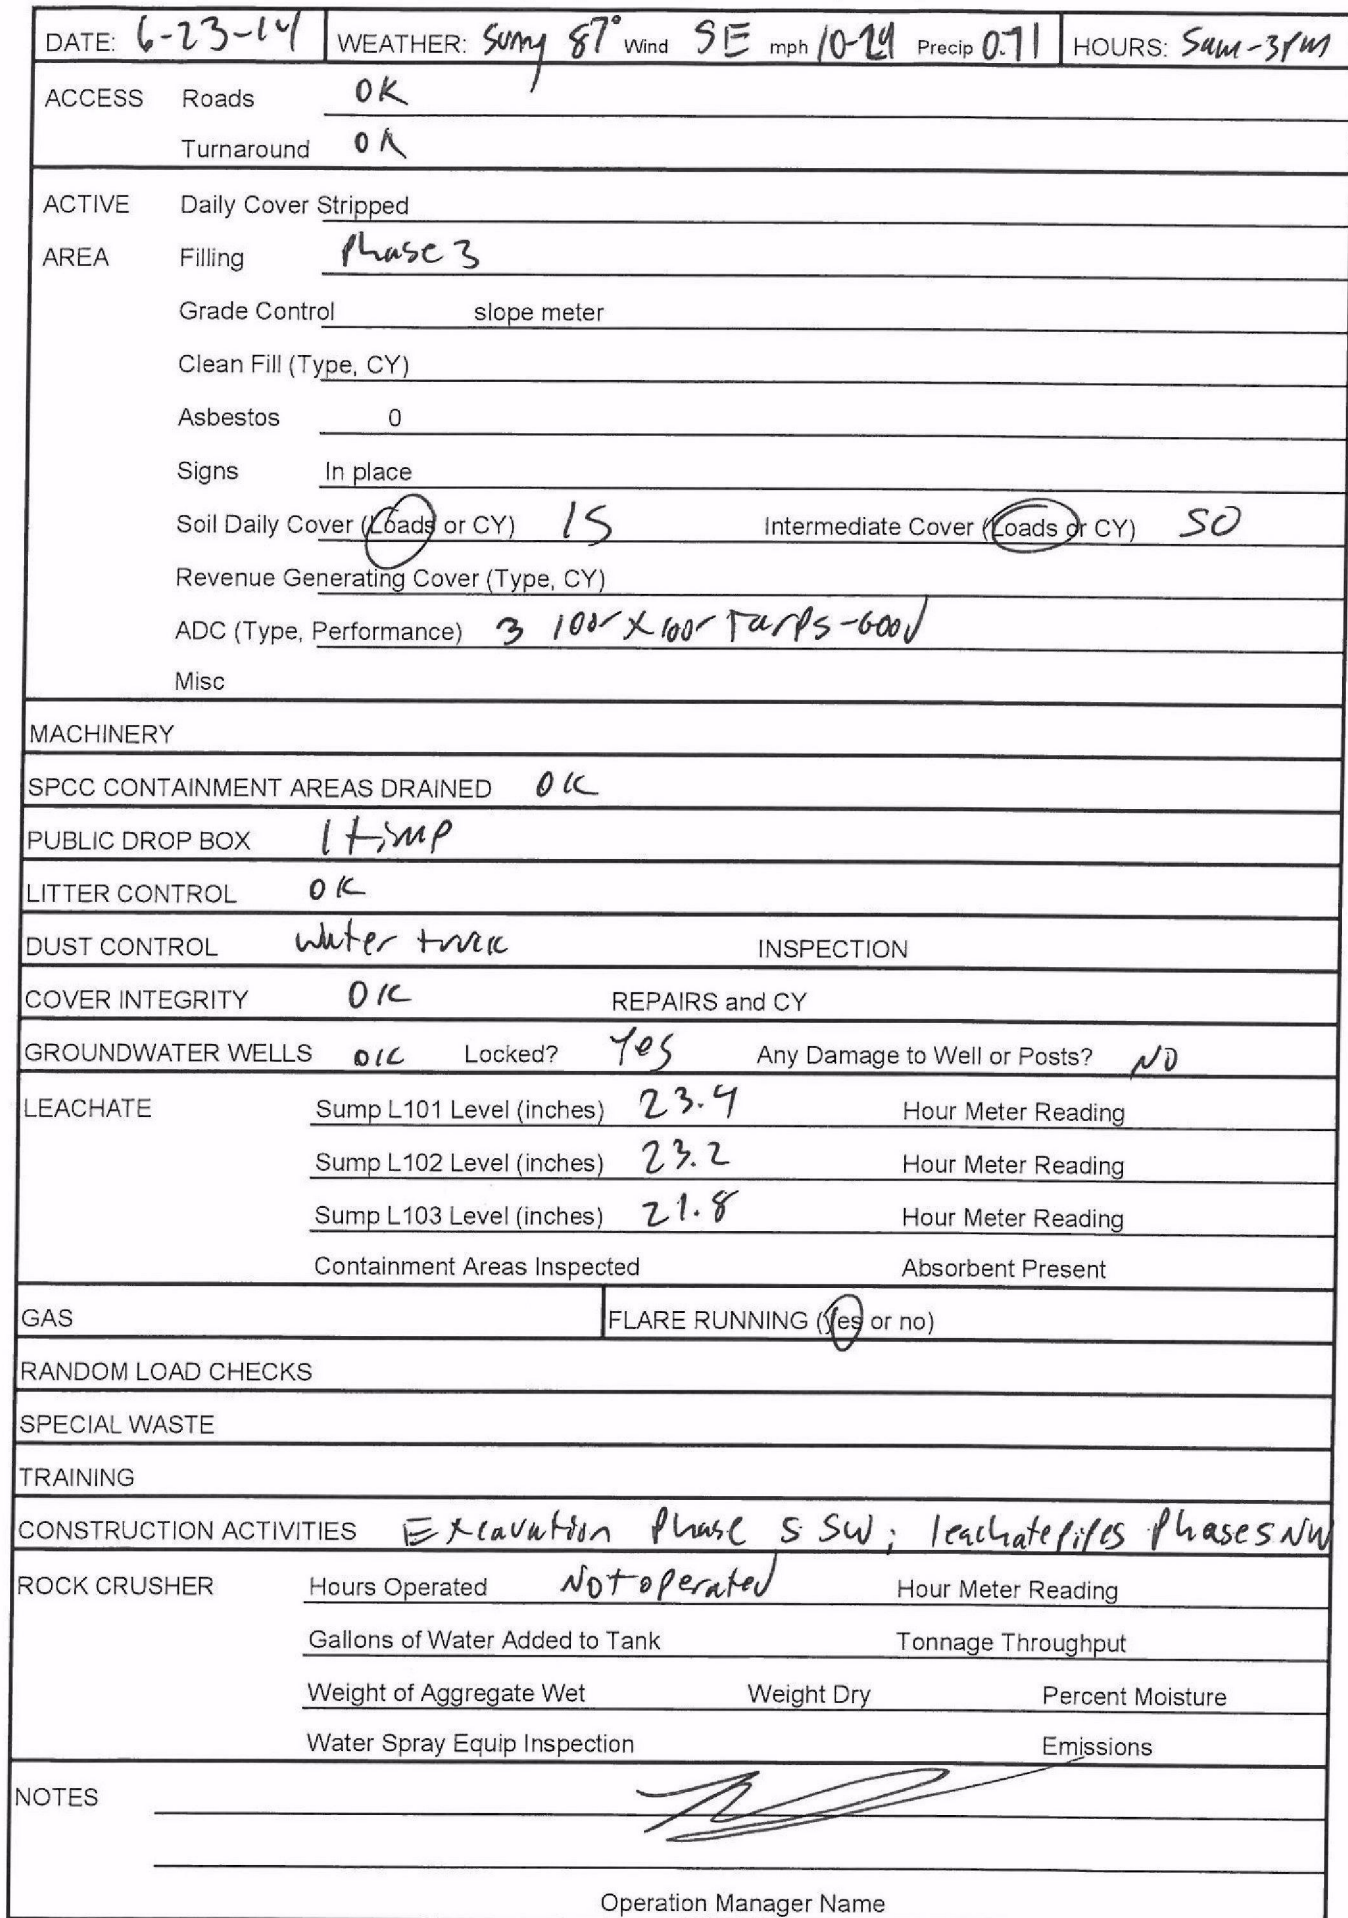 DATE: 6-23-14 WEATHER: Sunny 87° Wind SE mph 10-24 Precip 0.71 HOURS: 5am-3pm
ACCESS Roads OK
Turnaround OK
ACTIVE Daily Cover Stripped
AREA Filling Phase 3
Grade Control slope meter
Clean Fill (Type, CY)
Asbestos 0
Signs In place
Soil Daily Cover (Loads or CY) 15 Intermediate Cover (Loads or CY) 50
Revenue Generating Cover (Type, CY)
ADC (Type, Performance) 3 100' X 100' Tarps-Good
Misc
MACHINERY
SPCC CONTAINMENT AREAS DRAINED OK
PUBLIC DROP BOX 1 timp
LITTER CONTROL OK
DUST CONTROL Water truck INSPECTION
COVER INTEGRITY OK REPAIRS and CY
GROUNDWATER WELLS OK Locked? Yes Any Damage to Well or Posts? NO
LEACHATE Sump L101 Level (inches) 23.4 Hour Meter Reading
Sump L102 Level (inches) 23.2 Hour Meter Reading
Sump L103 Level (inches) 21.8 Hour Meter Reading
Containment Areas Inspected Absorbent Present
GAS FLARE RUNNING (yes or no)
RANDOM LOAD CHECKS
SPECIAL WASTE
TRAINING
CONSTRUCTION ACTIVITIES Excavation Phase 5 SW; leachate pipes Phase 5 NW
ROCK CRUSHER Hours Operated Not operated Hour Meter Reading
Gallons of Water Added to Tank Tonnage Throughput
Weight of Aggregate Wet Weight Dry Percent Moisture
Water Spray Equip Inspection Emissions
NOTES
Operation Manager Name